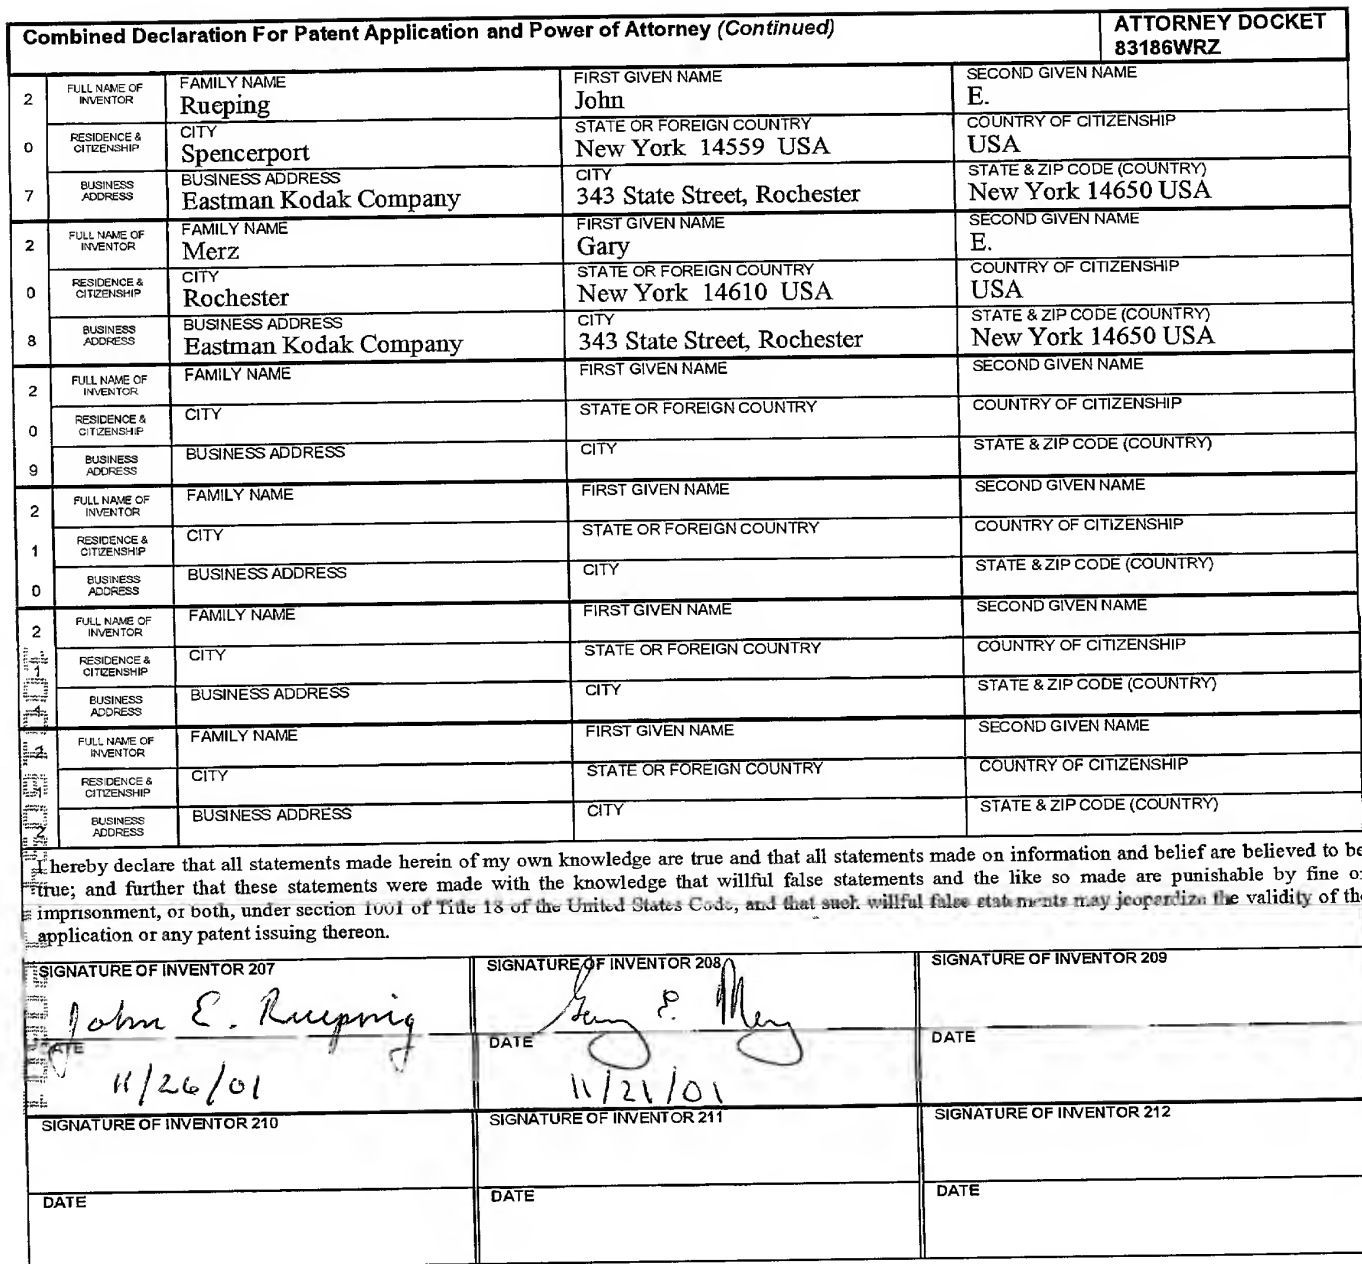 Combined Declaration For Patent Application and Power of Attorney (Continued)
ATTORNEY DOCKET
83186WRZ
2 FULL NAME OF INVENTOR FAMILY NAME Rueping FIRST GIVEN NAME John SECOND GIVEN NAME E.
0 RESIDENCE & CITIZENSHIP CITY Spencerport STATE OR FOREIGN COUNTRY New York 14559 USA COUNTRY OF CITIZENSHIP USA
7 BUSINESS ADDRESS BUSINESS ADDRESS Eastman Kodak Company CITY 343 State Street, Rochester STATE & ZIP CODE (COUNTRY) New York 14650 USA
2 FULL NAME OF INVENTOR FAMILY NAME Merz FIRST GIVEN NAME Gary SECOND GIVEN NAME E.
0 RESIDENCE & CITIZENSHIP CITY Rochester STATE OR FOREIGN COUNTRY New York 14610 USA COUNTRY OF CITIZENSHIP USA
8 BUSINESS ADDRESS BUSINESS ADDRESS Eastman Kodak Company CITY 343 State Street, Rochester STATE & ZIP CODE (COUNTRY) New York 14650 USA
2 FULL NAME OF INVENTOR FAMILY NAME FIRST GIVEN NAME SECOND GIVEN NAME
0 RESIDENCE & CITIZENSHIP CITY STATE OR FOREIGN COUNTRY COUNTRY OF CITIZENSHIP
9 BUSINESS ADDRESS BUSINESS ADDRESS CITY STATE & ZIP CODE (COUNTRY)
2 FULL NAME OF INVENTOR FAMILY NAME FIRST GIVEN NAME SECOND GIVEN NAME
1 RESIDENCE & CITIZENSHIP CITY STATE OR FOREIGN COUNTRY COUNTRY OF CITIZENSHIP
0 BUSINESS ADDRESS BUSINESS ADDRESS CITY STATE & ZIP CODE (COUNTRY)
2 FULL NAME OF INVENTOR FAMILY NAME FIRST GIVEN NAME SECOND GIVEN NAME
1 RESIDENCE & CITIZENSHIP CITY STATE OR FOREIGN COUNTRY COUNTRY OF CITIZENSHIP
1 BUSINESS ADDRESS BUSINESS ADDRESS CITY STATE & ZIP CODE (COUNTRY)
2 FULL NAME OF INVENTOR FAMILY NAME FIRST GIVEN NAME SECOND GIVEN NAME
1 RESIDENCE & CITIZENSHIP CITY STATE OR FOREIGN COUNTRY COUNTRY OF CITIZENSHIP
2 BUSINESS ADDRESS BUSINESS ADDRESS CITY STATE & ZIP CODE (COUNTRY)
I hereby declare that all statements made herein of my own knowledge are true and that all statements made on information and belief are believed to be
true; and further that these statements were made with the knowledge that willful false statements and the like so made are punishable by fine or
imprisonment, or both, under section 1001 of Title 18 of the United States Code, and that such willful false statements may jeopardize the validity of the
application or any patent issuing thereon.
SIGNATURE OF INVENTOR 207 SIGNATURE OF INVENTOR 208 SIGNATURE OF INVENTOR 209
John E. Rueping Gary E. Merz
DATE DATE DATE
11/26/01 11/21/01
SIGNATURE OF INVENTOR 210 SIGNATURE OF INVENTOR 211 SIGNATURE OF INVENTOR 212
DATE DATE DATE